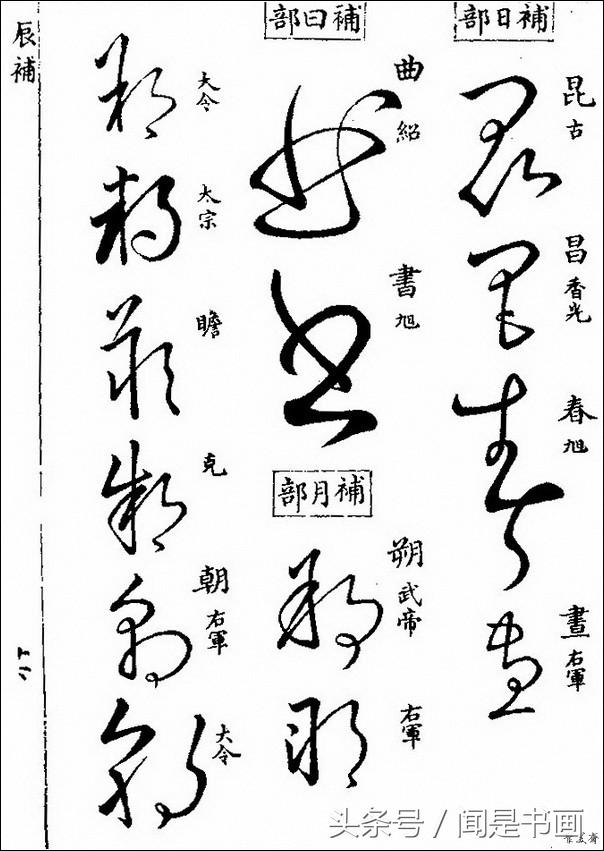 補日部
昆 古
昌 香光
春 旭
晝 右軍
補曰部
曲 紹
書 旭
補月部
朔 武帝
右軍
大令
太宗
瞻
克
朝 右軍
大令
辰補
头条号 / 闻是书画